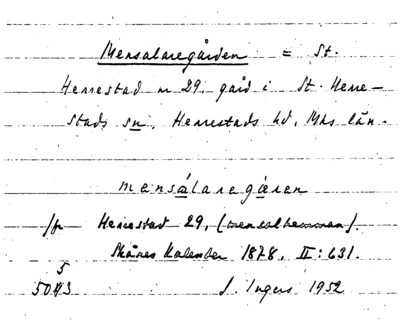 Mensalaregården = St.
Herrestad nr 29, gård i St. Herre-
stads sn, Herrestads hd, Mhs län.
mensálaregæren
fr Herrestad 29, (mensalhemman).
Skånes Kalender 1878, II:631.
5
5043
I. Ingers 1952